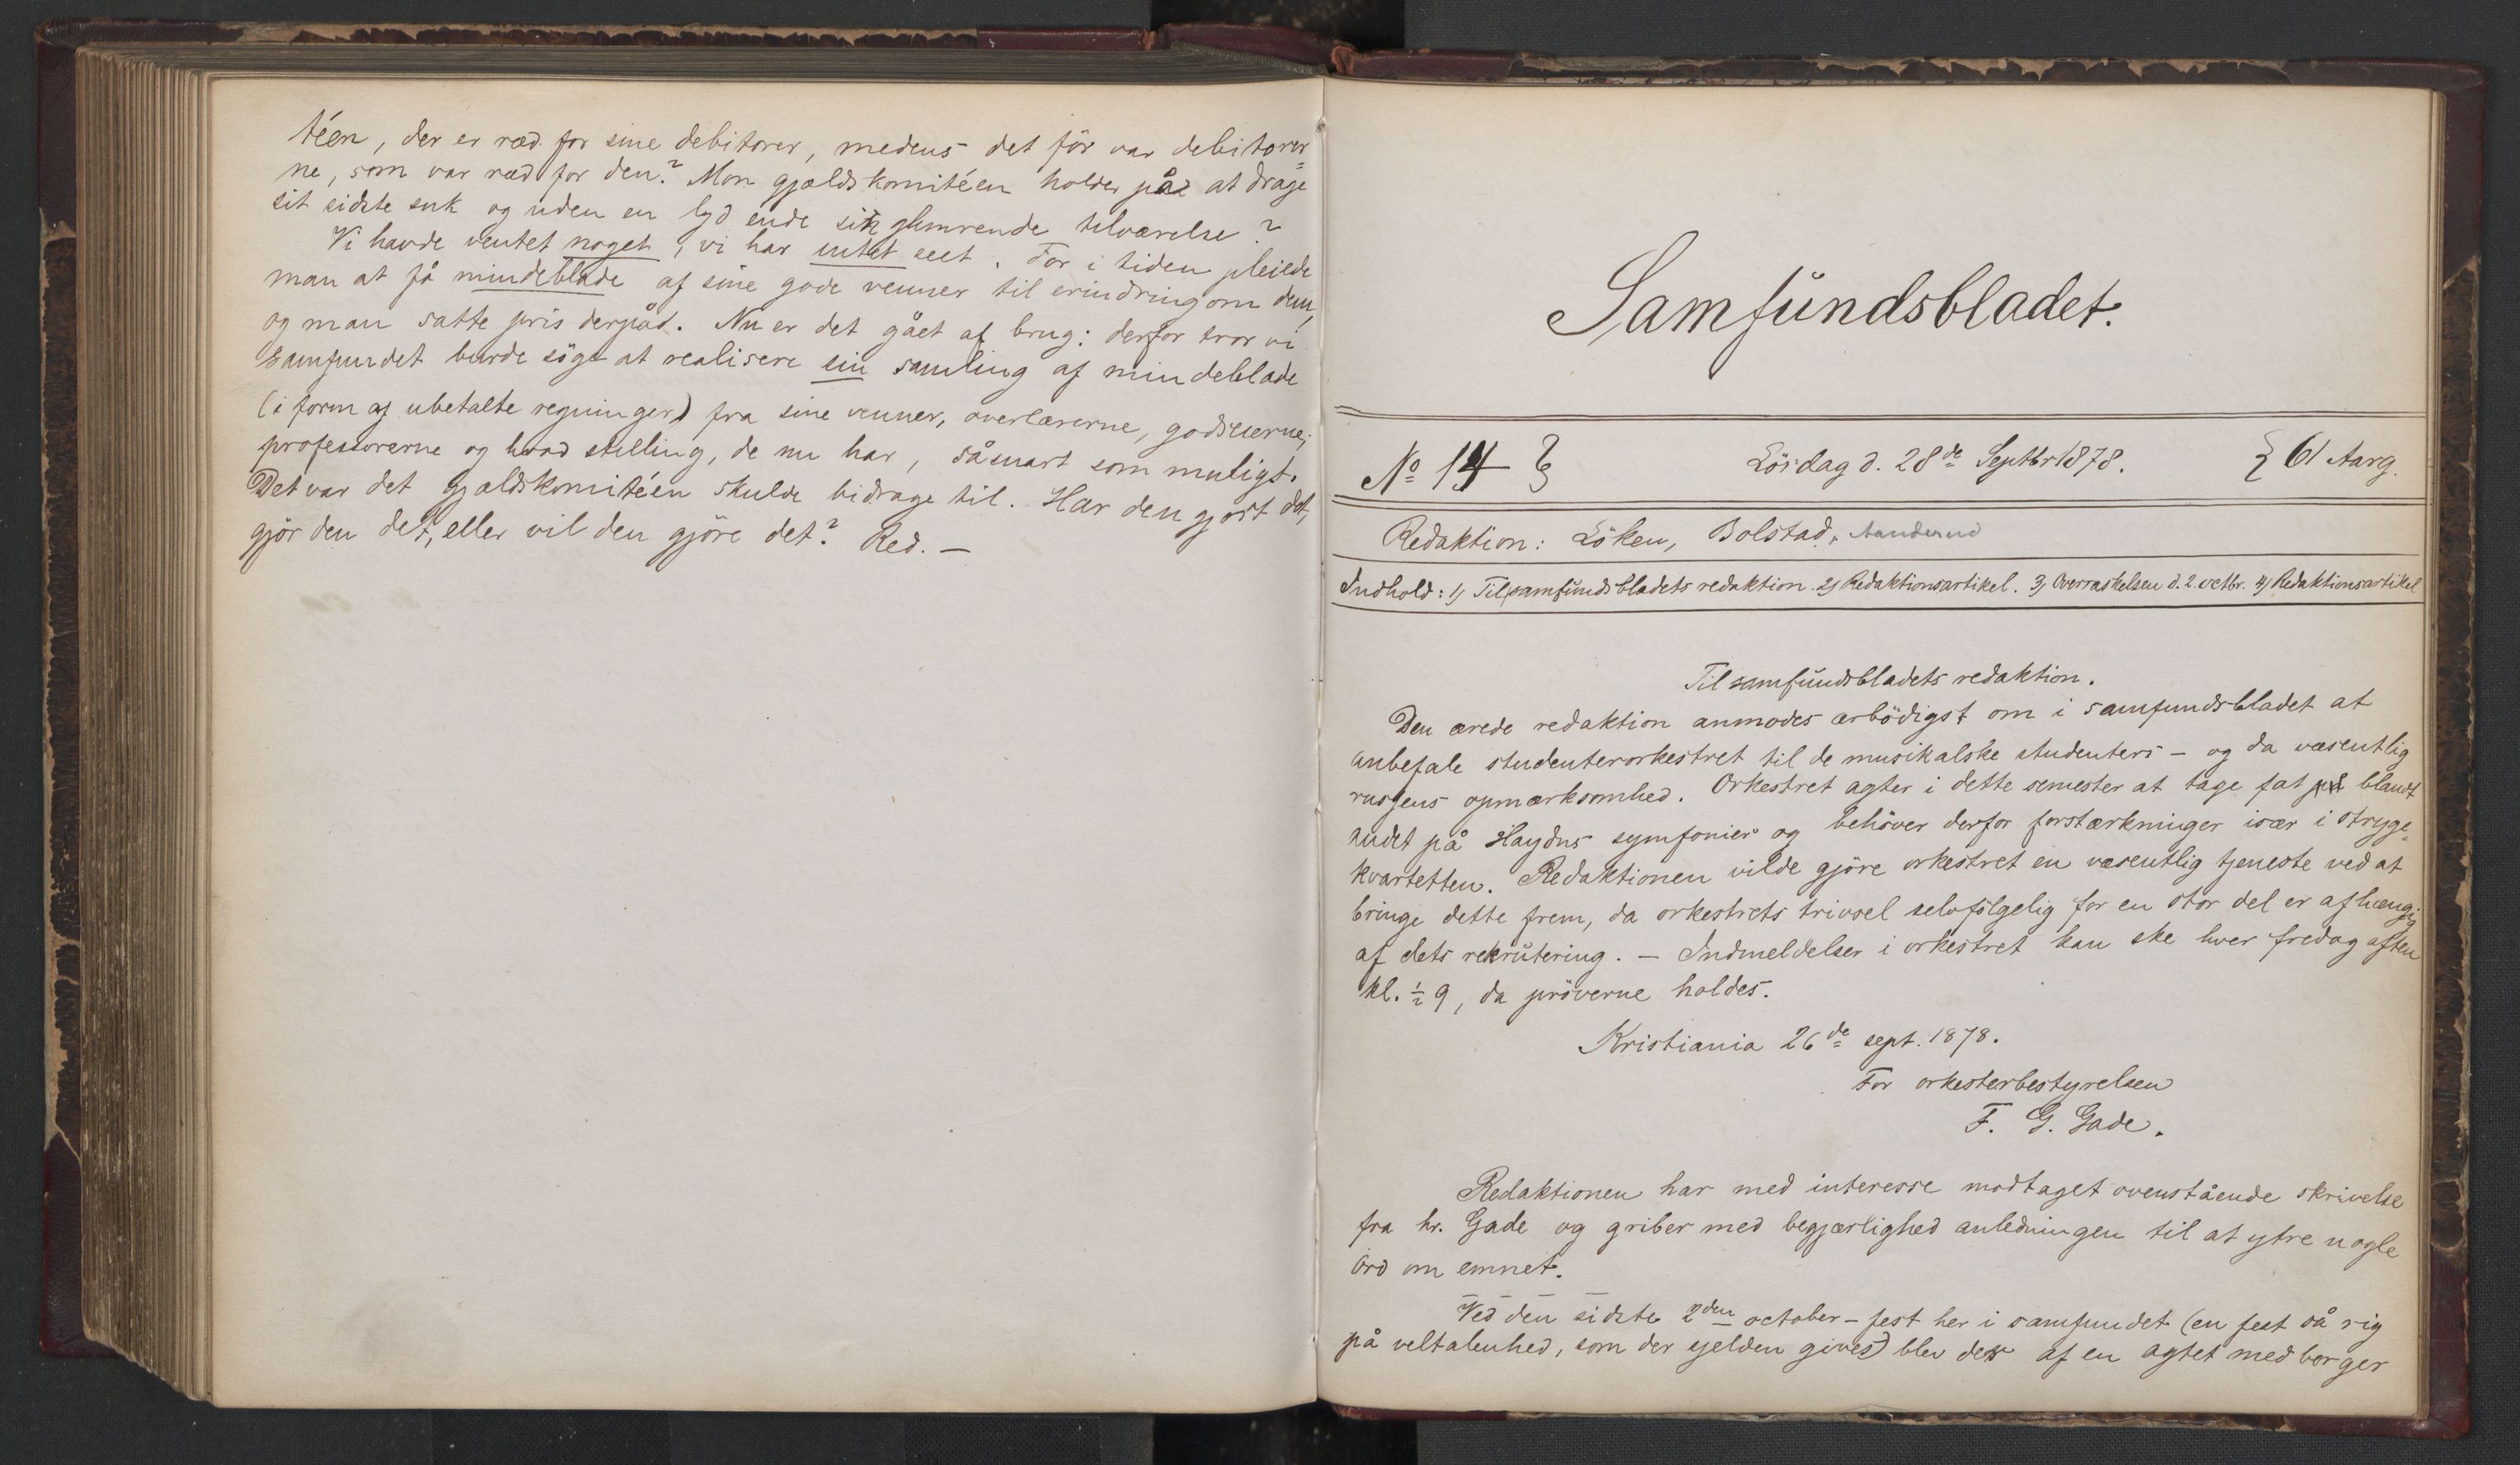 téen, der er ræd for sine debitorer, medens det för var debitorer=
ne, som var ræd for den? Mon gjældskomitéen holder på at drage
sit sidste suk og uden en lyd ende sin glimrende tilværelse?
Vi havde ventet noget, vi har intet seet. För i tiden pleiede
man at få mindeblade af sine gode venner til erindring om dem,
og man satte pris derpå. Nu er det gået af brug: derfor tror vi
samfundet burde söge at realisere sin samling af mindeblade
(i form af ubetalte regninger) fra sine venner, overlærerne, godseierne,
professorerne og hvad stilling, de nu har, såsnart som muligt.
Det var det gjældskomitéen skulde bidrage til. Har den gjort det,
gjör den det, eller vil den gjöre det? Red. —
Samfundsbladet.
No 14 Lördag d. 28de Septbr 1878. 61 Aarg.
Redaktion: Löken, Bolstad, Aanderud
Indhold: 1) Til samfundsbladets redaktion. 2) Redaktionsartikel. 3) Overraskelsen d. 2. octbr. 4) Redaktionsartikel
Til samfundsbladets redaktion.
Den ærede redaktion anmodes ærbödigst om i samfundsbladet at
anbefale studenterorkestret til de musikalske studenters – og da væsentlig
russens opmærksomhed. Orkestret agter i dette semester at tage fat blandt
andet på Haydns symfonier og behöver derfor forstærkninger især i stryge=
kvartetten. Redaktionen vilde gjöre orkestret en væsentlig tjeneste ved at
bringe dette frem, da orkestrets trivsel selvfölgelig for en stor del er afhængig
af dets rekrutering. – Indmeldelser i orkestret kan ske hver fredag aften
kl. ½ 9, da pröverne holdes.
Kristiania 26de sept. 1878.
For orkesterbestyrelsen
F. G. Gade.
Redaktionen har med interesse modtaget ovenstående skrivelse
fra hr. Gade og griber med begjærlighed anledningen til at ytre nogle
ord om emnet.
Ved den sidste 2den october-fest her i samfundet (en fest så rig
på veltalenhed, som der sjelden gives) blev der af en agtet medborger